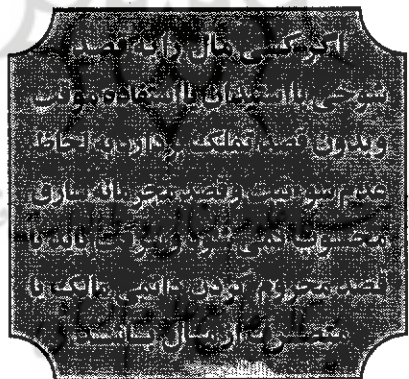 اگر کسی مال را به قصد
شوخی یا استیذان یا استفاده موقت
و بدون قصد تملک بردارد به لحاظ
عدم سوء نیت و قصد مجرمانه سارق
محسوب نمی شود و سرقت باید با
قصد محروم کردن دائمی مالک یا
متصرف از مال باشد